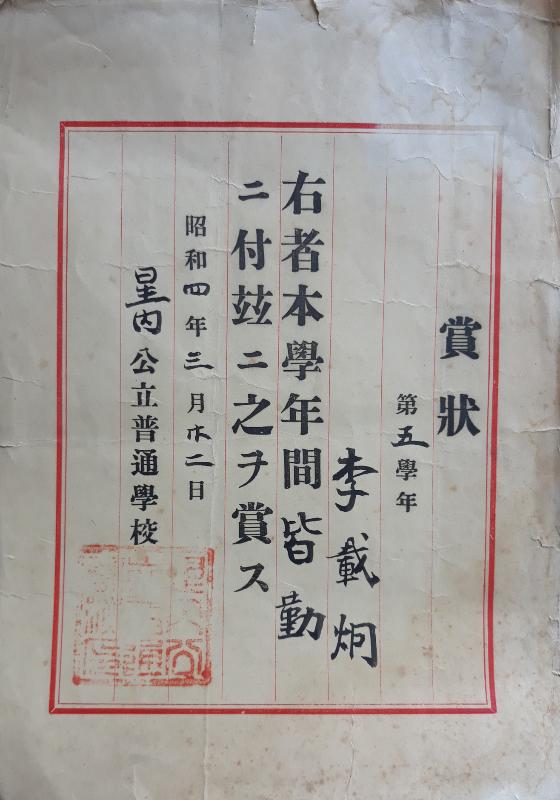 賞狀
第五學年
李載炯
右者本學年間皆勤
ニ付玆ニ之ヲ賞ス
昭和四年三月廿二日
星內公立普通學校